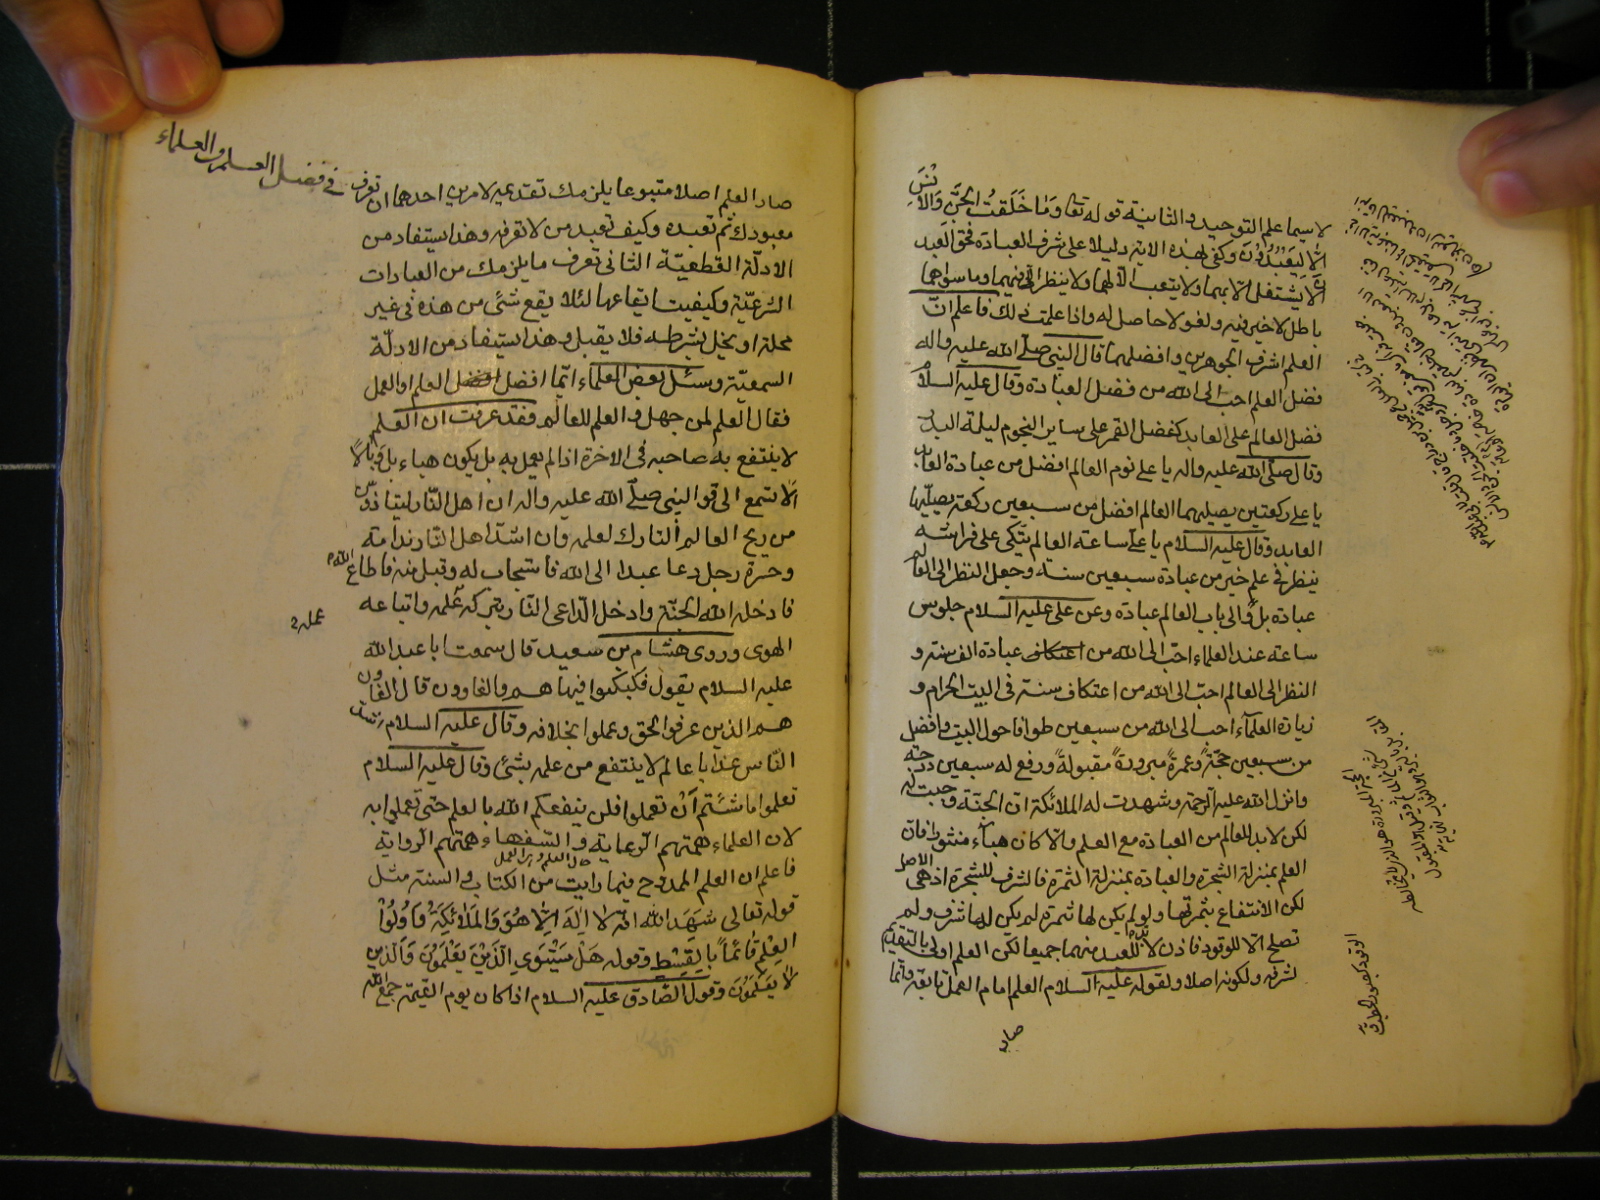 لاسيما علم التوحيد والثانية قوله تعا وَمَا خَلَقتُ الجِنَّ وَالاِنسَ
اِلّا لِيَعبُدُونَ وكفى بهذه الاية دليلا على شرف العبادة فحق العبد
ان لا يشتغل الا بهما ولا يتعب الا لهما ولا ينظر الا فيهما وما سواهما
باطل لا خير فيه ولغو لا حاصل له واذا علمت ذلك فاعلم انّ
العلم اشرف الجوهرين وافضلهما قال النبي صلّى الله عليه واله
فضل العلم احب الى الله من فضل العبادة وقال عليه السلام
فضل العالم على العابد كفضل القمر على ساير النجوم ليلة البدر
وقال صلّى الله عليه واله يا على نوم العالم افضل من عبادة العابد
يا على ركعتين يصليهما العالم افضل من سبعين ركعة يصليها
العابد وقال عليه السلام يا على ساعة العالم يتكى على فراشه
ينظر في علم خير من عبادة سبعين سنة وجعل النظر الى العالم
عبادة بل والى باب العالم عبادة وعن على عليه السلام جلوس
ساعة عند العلماء احبّ الى الله من عبادة الف سنة و
النظر الى العالم احبّ الى الله من اعتكاف سنة في البيت الحرام و
زيارة العلماء احب الى الله من سبعين طوافا حول البيت وافضل
من سبعين حجّة وعمرة مبرورة مقبولة ورفع له سبعين درجة
وانزل الله عليه الرحمة وشهدت له الملائكة ان الجنّة وجبت له
لكن لا بد للعالم من العبادة مع العلم والّا كان هباء منثورا فان
العلم بمنزلة الشجرة والعبادة بمنزلة الثمرة فالشرف للشجرة اذ هى الاصل
لكن الانتفاع بثمرتها ولو لم يكن لها ثمرة لم يكن لها شرف ولم
تصلح الا للوقود فاذن لا بدّ للعبد منهما جميعا لكن العلم اولى بالتقديم
لشرفه ولكونه اصلا ولقوله عليه السلام العلم امام العمل تابعه وانما
صار
في فضل العلم والعلماء
صار العلم اصلا متبوعا يلزمك تقديمه لامرين احدهما ان تعرف
معبودك ثم تعبده وكيف تعبد من لا تعرفه وهذا يستفاد من
الادلّة القطعيّة الثانى تعرف ما يلزمك من العبادات
الشرعيّة وكيفية ايقاعها لئلا يقع شئ من هذه في غير
محله او يخل بشرطه فلا يقبل وهذا يستفاد من الادلّة
السمعيّة وسئل بعض العلماء ايّما افضل العلم او العمل
فقال العلم لمن جهل والعلم للعالم فقد عرفت ان العلم
لا ينتفع به صاحبه في الاخرة اذا لم يعمل به بل يكون هباء بل وبالًا
الا تسمع الى قول النبي صلّى الله عليه واله ان اهل النّار ليتاذون
من ريح العالم التارك لعلمه وان اشدّ اهل النّار ندامة
وحسرة رجل دعا عبدا الى الله فاستجاب له وقبل منه فاطاع الله
فادخله الله الجنّة وادخل الدّاعى النّار بتركه علمه واتباعه
عمله
الهوى وروى هشام بن سعيد قال سمعت ابا عبد الله
عليه السلام يقول فكبكبوا فيها هم والغاوون قال الغاوون
هم الذين عرفوا الحق وعملوا بخلافه وقال عليه السلام اشد
النّاس عذابا عالم لا ينتفع من علمه بشئ وقال عليه السلام
تعلموا ما شئتم اَنْ تعملوا فلن ينفعكم الله بالعلم حتى تعملوا به
لان العلماء همتهم الرعاية والسفهاء همتهم الرواية
فاعلم ان العلم الممدوح فيما رايت من الكتاب والسنة مثل
قوله تعالى شَهِدَ الله انّه لا اِلهَ اِلّا هُوَ وَالمَلائِكَةُ وَاُولُوْا
العِلْمِ قائمًا بِالقِسْطِ وقوله هَلْ يَسْتَوِى الّذينَ يَعْلَمُونَ وَالّذين
لا يَعْلَمُونَ وقول الصّادق عليه السلام اذا كان يوم القيمة جمع الله